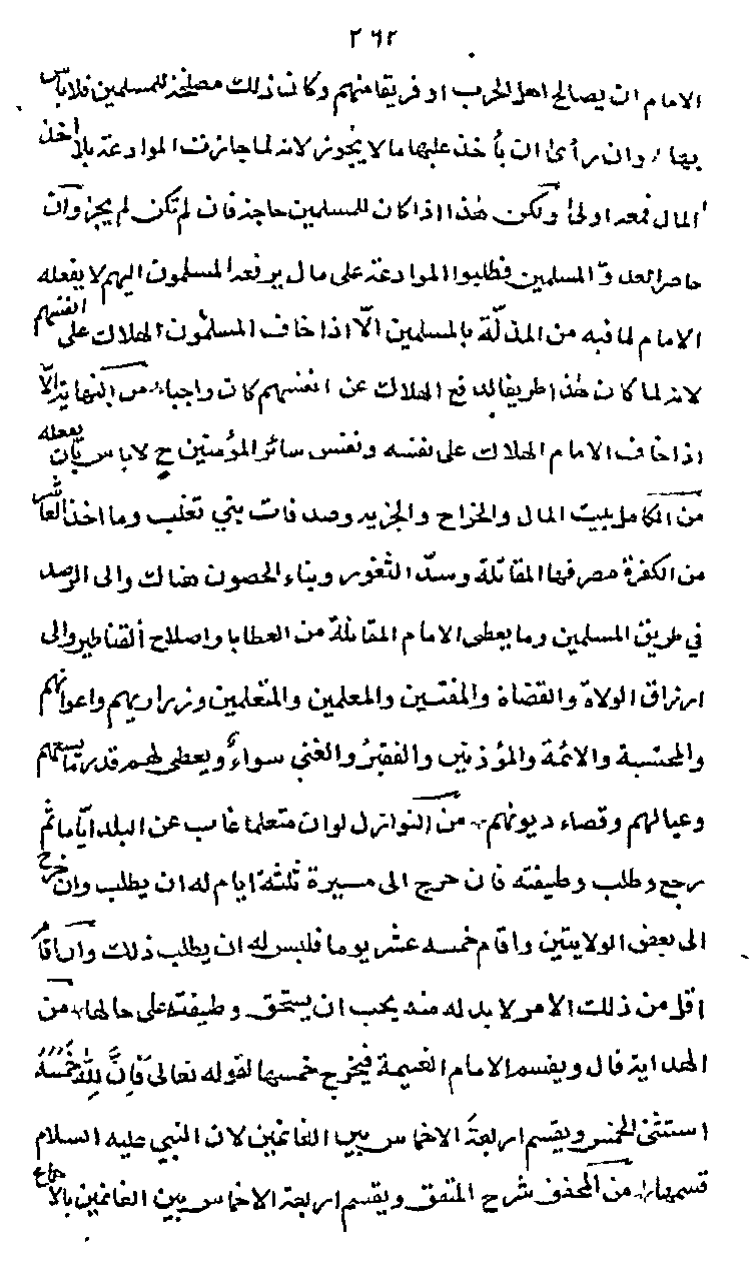 ٢٦٢
الامام ان يصالح اهل الحرب او فريقا منهم وكان ذلك مصلحة للمسلمين فلا باس
بها وان رأى ان يأخذ عليها مالا يجوز لانه لما جازت الموادعة بلا اخذ
المال فمعه اولى ولكن هذا اذا كان للمسلمين حاجة فان لم تكن لم يجز وان
حاصر العدوّ المسلمين فطلبوا الموادعة على مال يدفعه المسلمون اليهم لا يفعله
الامام لما فيه من المذلّة بالمسلمين الّا اذا خاف المسلمون الهلاك على انفسهم
لانه لما كان هذا طريقا لدفع الهلاك عن انفسهم كان واجبا من النهاية الّا
اذا خاف الامام الهلاك على نفسه ونفس سائر المؤمنين ح لا باس بان يفعله
من الكامل بيت المال والخراج والجزية وصدقات بني تغلب وما اخذ العاشر
من الكفرة مصرفها المقاتلة وسدّ الثغور وبناء الحصون هناك والى الرصد
في طريق المسلمين وما يعطى الامام المقاتلة من العطايا واصلاح القناطير والى
ارزاق الولاة والقضاة والمفتين والمعلمين والمتعلمين وذراريهم واعوانهم
والمحتسبة والائمة والمؤذنين والفقير والغني سواء ويعطى لهم قدر ما يسعهم
وعيالهم وقضاء ديونهم من النوازل لو ان متعلما غاب عن البلد ايّاما ثم
رجع وطلب وظيفته فان خرج الى مسيرة ثلثة ايام له ان يطلب وان خرج
الى بعض الولايتين واقام خمسة عشر يوما فليس له ان يطلب ذلك وان اقام
اقل من ذلك الامر لا بد له منه يجب ان يستحق وظيفته على حالها من
الهداية قال ويقسم الامام الغنيمة فيخرج خمسها لقوله تعالى فَاَنَّ لِلّٰهِ خُمُسَهُ
استثنى الخمس ويقسم اربعة الاخماس بين الغانمين لان النبي عليه السلام
قسمها من المحقق شرح المتفق ويقسم اربعة الاخماس بين الغانمين بالاجماع